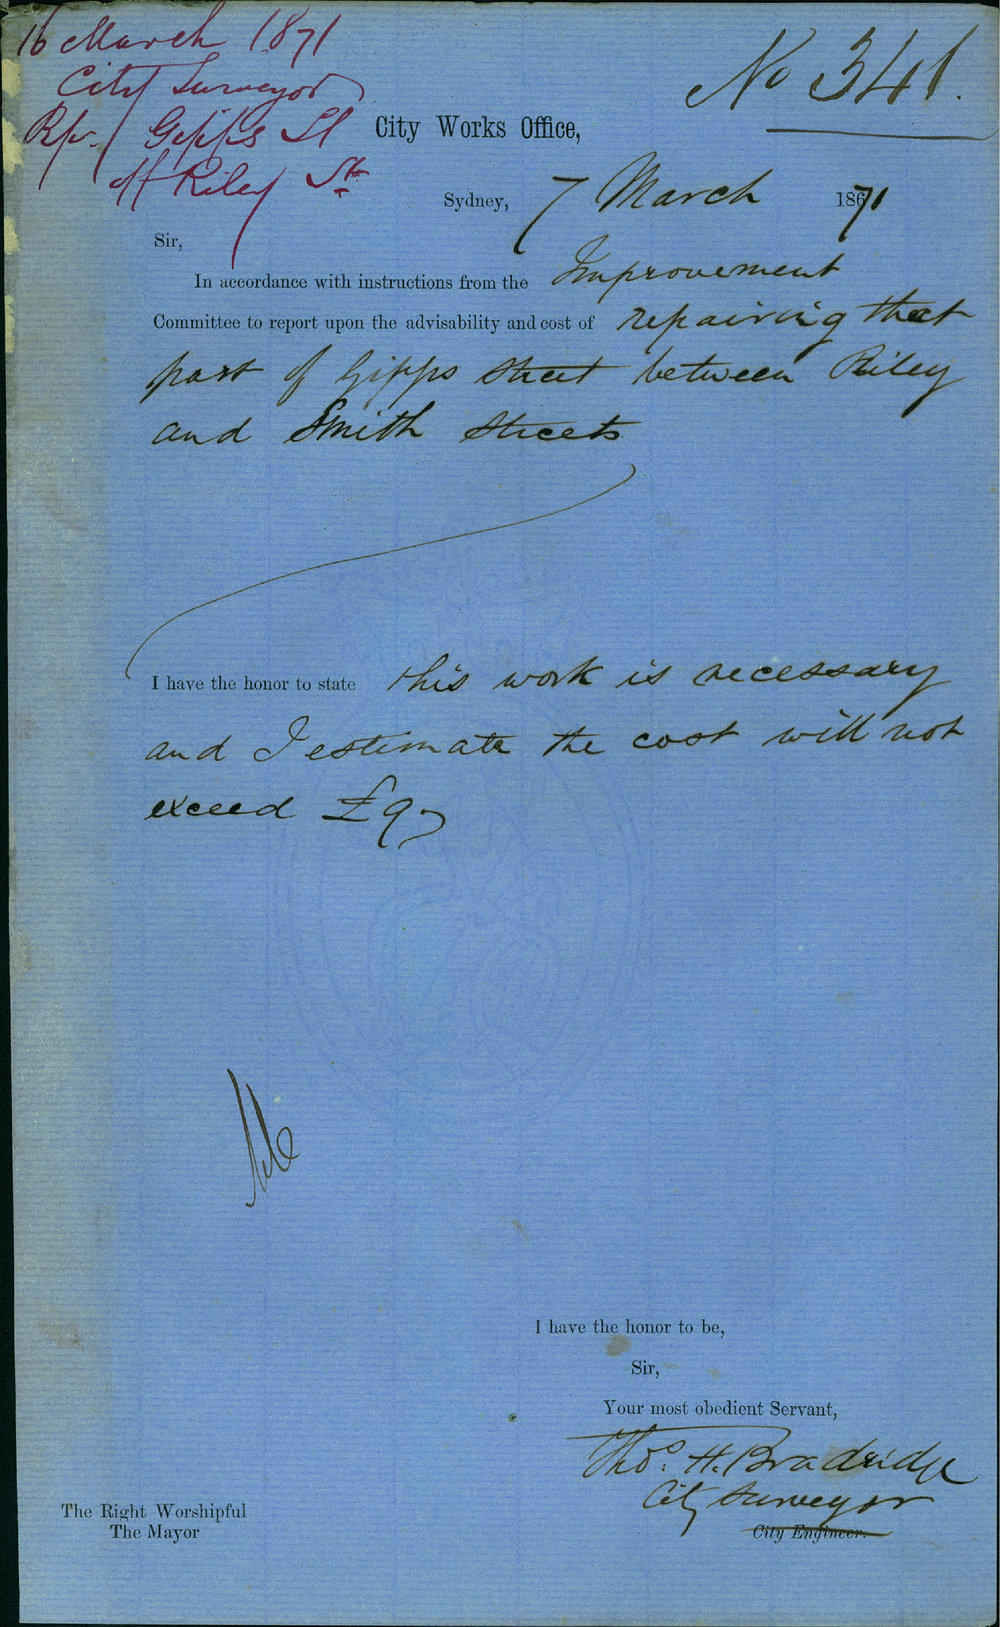 16 March 1871
City Surveyor
Rpr. Gipps St
off Riley St
No 341.
City Works Office,
Sydney, 7 March 1871
Sir,
In accordance with instructions from the Improvement
Committee to report upon the advisability and cost of repairing that
part of Gipps Street between Riley
and Smith Streets
I have the honor to state this work is necessary
and I estimate the cost will not
exceed £9
I have the honor to be,
Sir,
Your most obedient Servant,
Thos. H. Bradridge
City Surveyor
City Engineer.
The Right Worshipful
The Mayor